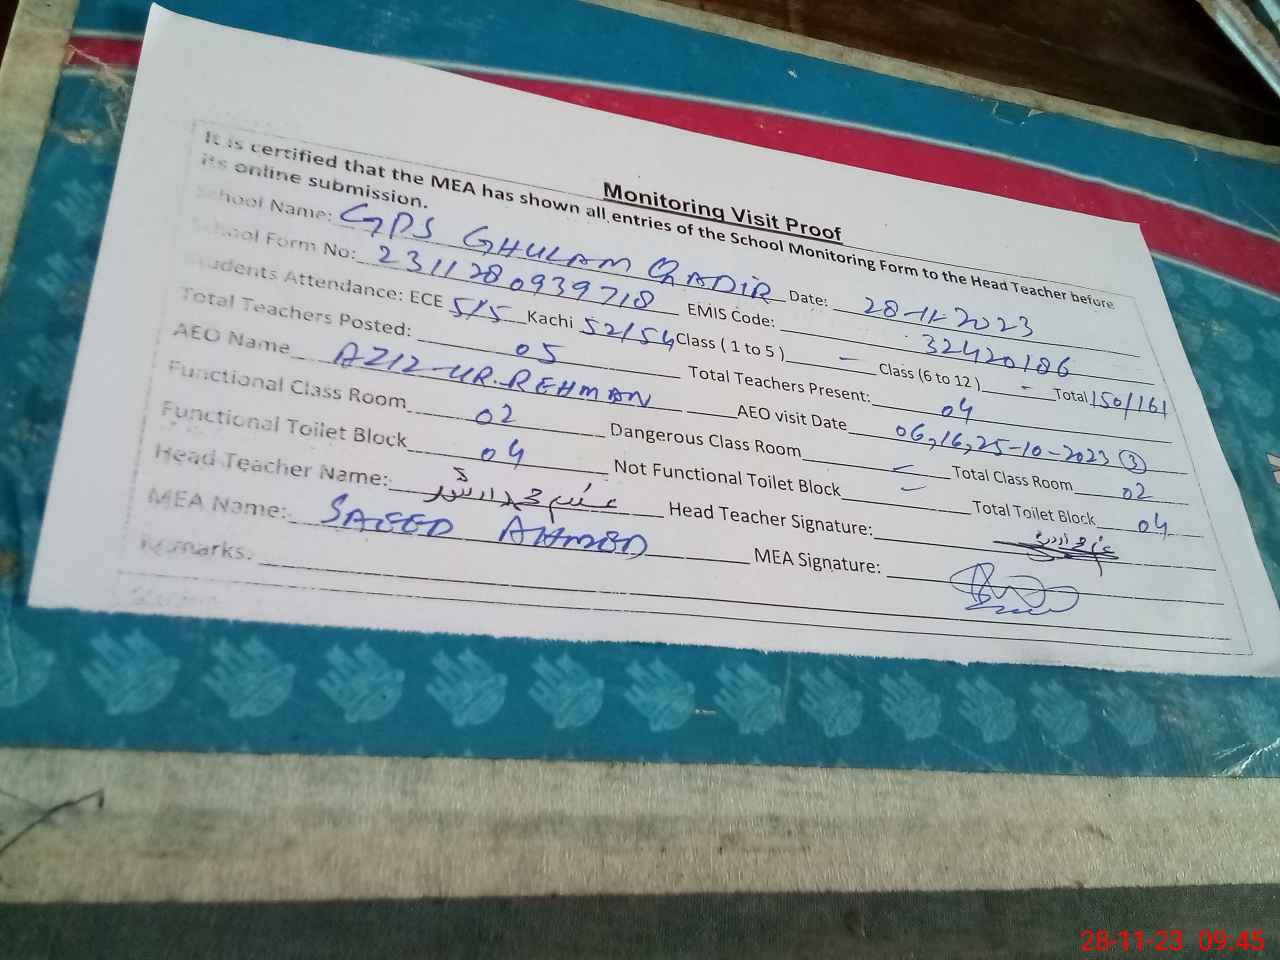 Monitoring Visit Proof
It is certified that the MEA has shown all entries of the School Monitoring Form to the Head Teacher before
its online submission.
School Name: GPS GHULAM QADIR Date: 28-11-2023
School Form No: 2311280939718 EMIS Code: 32420186
Students Attendance: ECE 5/5 Kachi 52/54 Class ( 1 to 5 ) - Class (6 to 12 ) - Total 150/161
Total Teachers Posted: 05 Total Teachers Present: 04
AEO Name AZIZ-UR-REHMAN AEO visit Date 06,16,25-10-2023 (3)
Functional Class Room 02 Dangerous Class Room - Total Class Room 02
Functional Toilet Block 04 Not Functional Toilet Block - Total Toilet Block 04
Head Teacher Name: Head Teacher Signature:
MEA Name: SAEED AHMED MEA Signature:
Remarks:
28-11-23 09:45